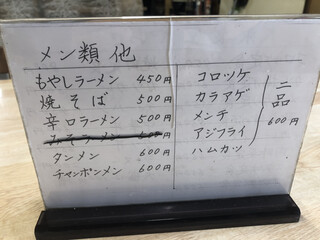 メン類他
もやしラーメン 450円
焼そば 500円
辛口ラーメン 500円
みそラーメン
タンメン 600円
チャンポンメン 600円
コロッケ
カラアゲ
メンチ
アジフライ
ハムカツ
二品
600円